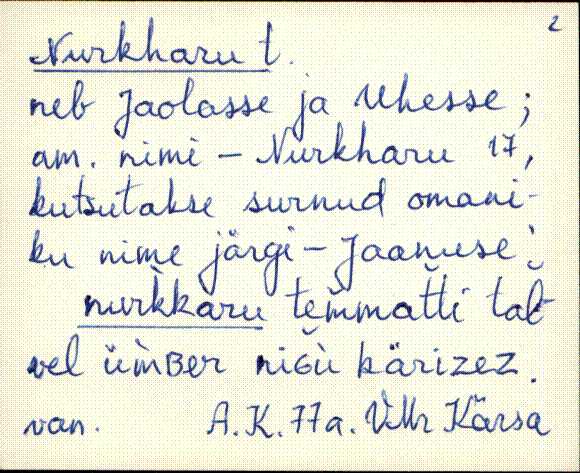 2
Nurkharu t.
neb Jaolasse ja Uhesse;
am. nimi – Nurkharu 17,
kutsutakse surnud omani-
ku nime järgi – Jaanuse;
nurkkaru temmatti tal-
vel ümber nigu kärizez.
van. A.K. 77a. V.Mr Kärsa